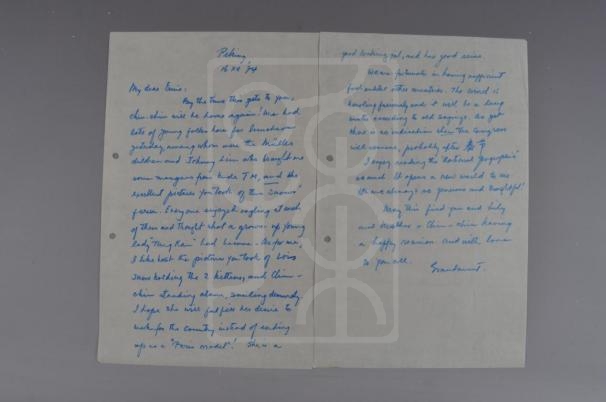 Peking
16 XII '74
My dear
By the time this gets to you,
Chin-chin will be home again! We had
lots of young folks here for luncheon
yesterday, among whom were the Müller
children and Johnny who brought me
some from T.M. and the
excellent pictures you took of the
Everyone enjoyed ogling at each
of them and thought what a grown-up young
lady "Ming Kai" had become. As for me,
I like best the pictures you took of Lois
Snow holding the 2 kittens, and Chin-
chin standing alone, smiling demurely.
I hope she will fulfil her desire to
work for the country instead of ending
up as a "Paris model"! She is a
good looking gal, and has good sense.
We are fortunate in having sufficient
food unlike other countries. The wind is
howling furiously and it will be a long
winter according to old sayings. As yet
there is no indication when the Congress
will convene, probably after
I enjoy reading the "National Geographic"
so much. It opens a new world to me.
are always so generous and thoughtful!
May this find you and
and Mother + Chin-chin having
a happy reunion and with love
to you all.
Grandaunt.